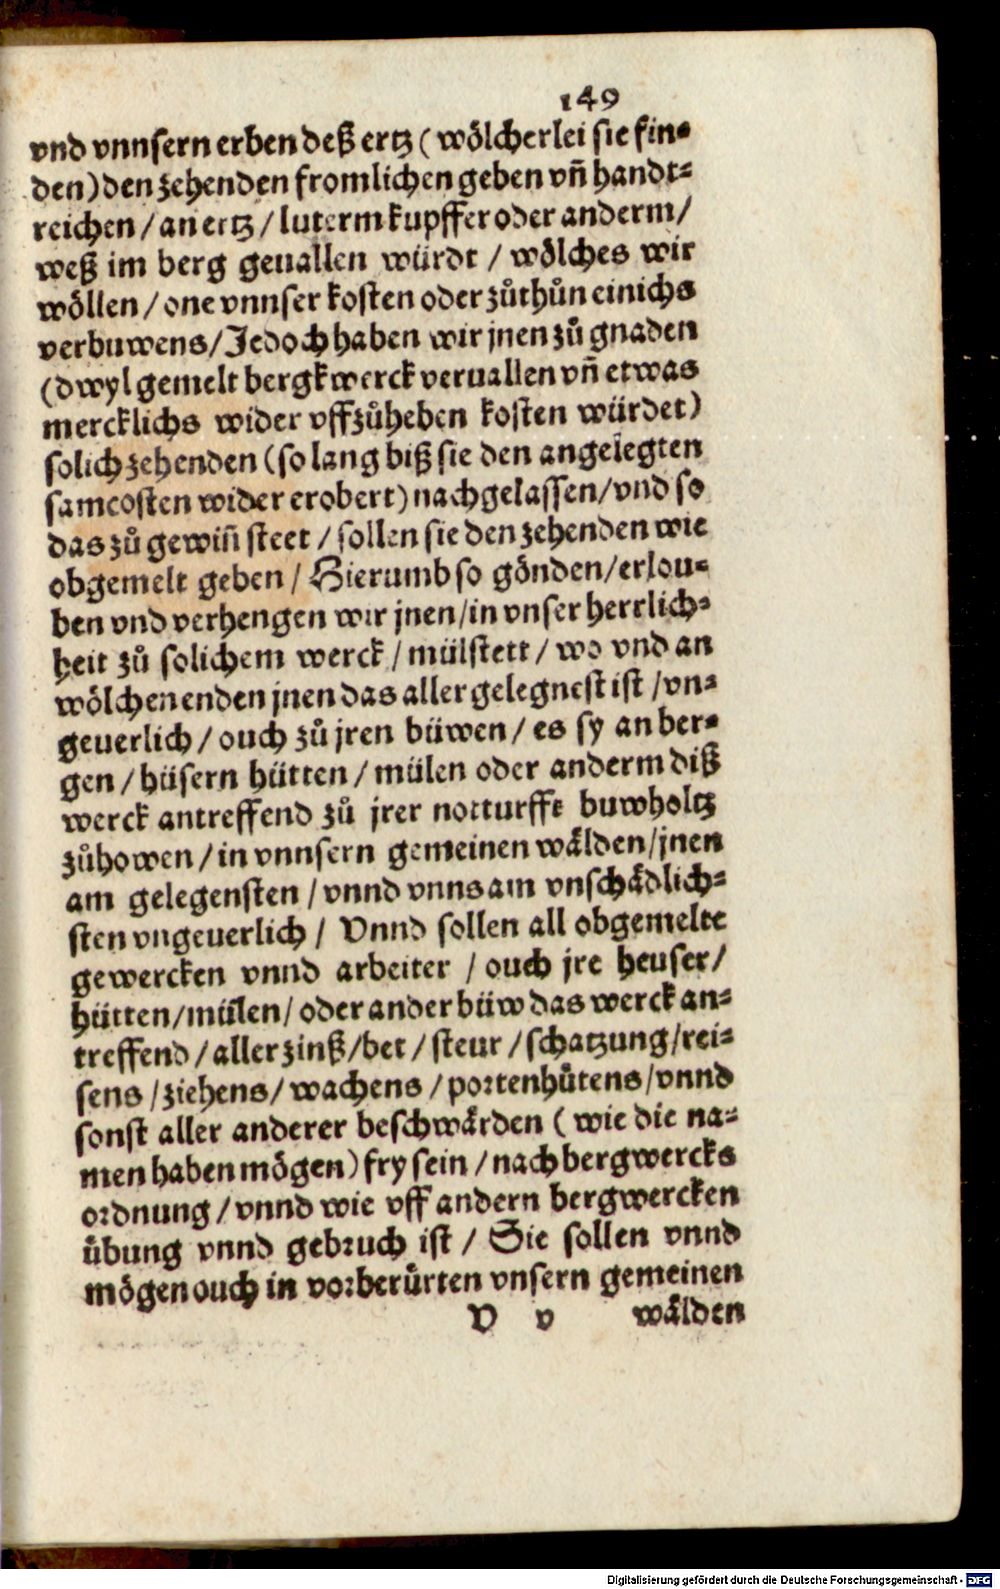 149
vnd vnnsern erben deß ertz (woͤlcherlei sie fin⸗
den) den zehenden fromlichen geben vñ handt⸗
reichen / an ertz / luterm kupffer oder anderm /
weß im berg geuallen würdt / woͤlches wir
woͤllen / one vnnser kosten oder zuͦthuͦn einichs
verbuwens / Jedoch haben wir jnen zuͦ gnaden
(dwyl gemelt bergkwerck veruallen vñ etwas
mercklichs wider vffzuͦheben kosten würdet)
solich zehenden (so lang biß sie den angelegten
samcosten wider erobert) nachgelassen / vnd so
das zuͦ gewiñ steet / sollen sie den zehenden wie
obgemelt geben / Hierumb so goͤnden / erlou⸗
ben vnd verhengen wir jnen / in vnser herrlich⸗
heit zuͦ solichem werck / mülstett / wo vnd an
woͤlchen enden jnen das aller gelegnest ist / vn⸗
geuerlich / ouch zuͦ jren büwen / es sy an ber⸗
gen / hüsern hütten / mülen oder anderm diß
werck antreffend zuͦ jrer notturfft buwholtz
zuͦhowen / in vnnsern gemeinen waͤlden / jnen
am gelegensten / vnnd vnns am vnschaͤdlich⸗
sten vngeuerlich / Vnnd sollen all obgemelte
gewercken vnnd arbeiter / ouch jre heuser /
hütten / mülen / oder ander büw das werck an⸗
treffend / aller zinß / bet / steur / schatzung / rei⸗
sens / ziehens / wachens / portenhuͤtens / vnnd
sonst aller anderer beschwaͤrden (wie die na⸗
men haben moͤgen) fry sein / nach bergwercks
ordnung / vnnd wie vff andern bergwercken
uͤbung vnnd gebruch ist / Sie sollen vnnd
moͤgen ouch in vorberuͤrten vnsern gemeinen
V v waͤlden
Digitalisierung gefördert durch die Deutsche Forschungsgemeinschaft - DFG